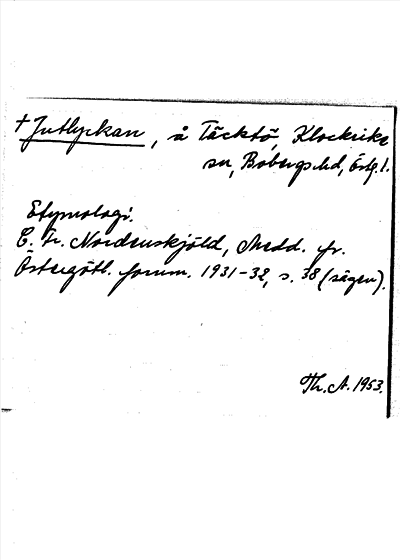 † Jutlyckan, å Täcktö, Klockrike
sn, Bobergs hd, Östg. l.
Etymologi.
C. Fr. Nordenskjöld, Medd. fr.
Östergötl. fornm. 1931-32, s. 38 (sägen).
Th. A. 1953.